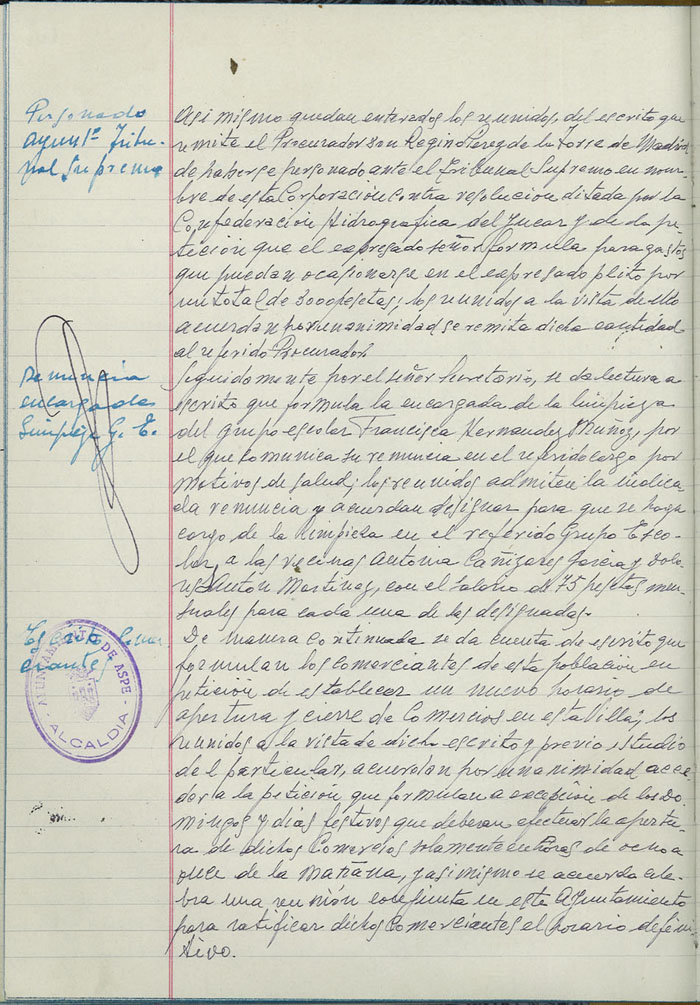 Personado
Ayunt° Tribu-
nal Supremo
Asi mismo quedan enterados los reunidos, del escrito que
remite el Procurador don Regino Perez de la Torre de Madrid
de haberse personado ante el Tribunal Supremo en nom-
bre de esta Corporación contra resolución ditada por la
Confederación Hidrografica del Jucar y de la pe-
tición que el expresado señor formula para gastos
que puedan ocasionarse en el expresado plito por
un total de 3000 pesetas; los reunidos a la vista de ello
acuerdan por unanimidad se remita dicha cantidad
al referido Procurador.
Renuncia
encargada
Limpieza G. E.
Seguidamente por el señor Secretario, se da lectura a
escrito que formula la encargada de la limpieza
del grupo escolar Francisca Hernandez Muñoz, por
el que comunica su renuncia en el referido cargo por
motivos de salud; los reunidos admiten la indica-
da renuncia y acuerdan designar para que se haga
cargo de la limpieza en el referido Grupo Esco-
lar, a las vecinas Antonia Cañizares Garcia y Dolo-
res Anton Martinez, con el salario de 75 pesetas men-
suales para cada una de las designadas.
Escrito comer
ciantes
AYUNTAMIENTO DE ASPE
- ALCALDIA -
De manera continuada se da cuenta de escrito que
formulan los comerciantes de esta población en
petición de establecer un nuevo horario de
apertura y cierre de Comercios en esta Villa; los
reunidos a la vista de dicho escrito y previo studio
del particular, acuerdan por unanimidad acce-
der a la petición que formulan a excepción de los Do-
mingos y dias festivos que deberan efectuar la apertu-
ra de dichos Comercios solamente en horas de ocho a
once de la mañana, y asi mismo se acuerda cele-
bra una reunión conjunta en este Ayuntamiento
para ratificar dichos Comerciantes el horario defini-
tivo.